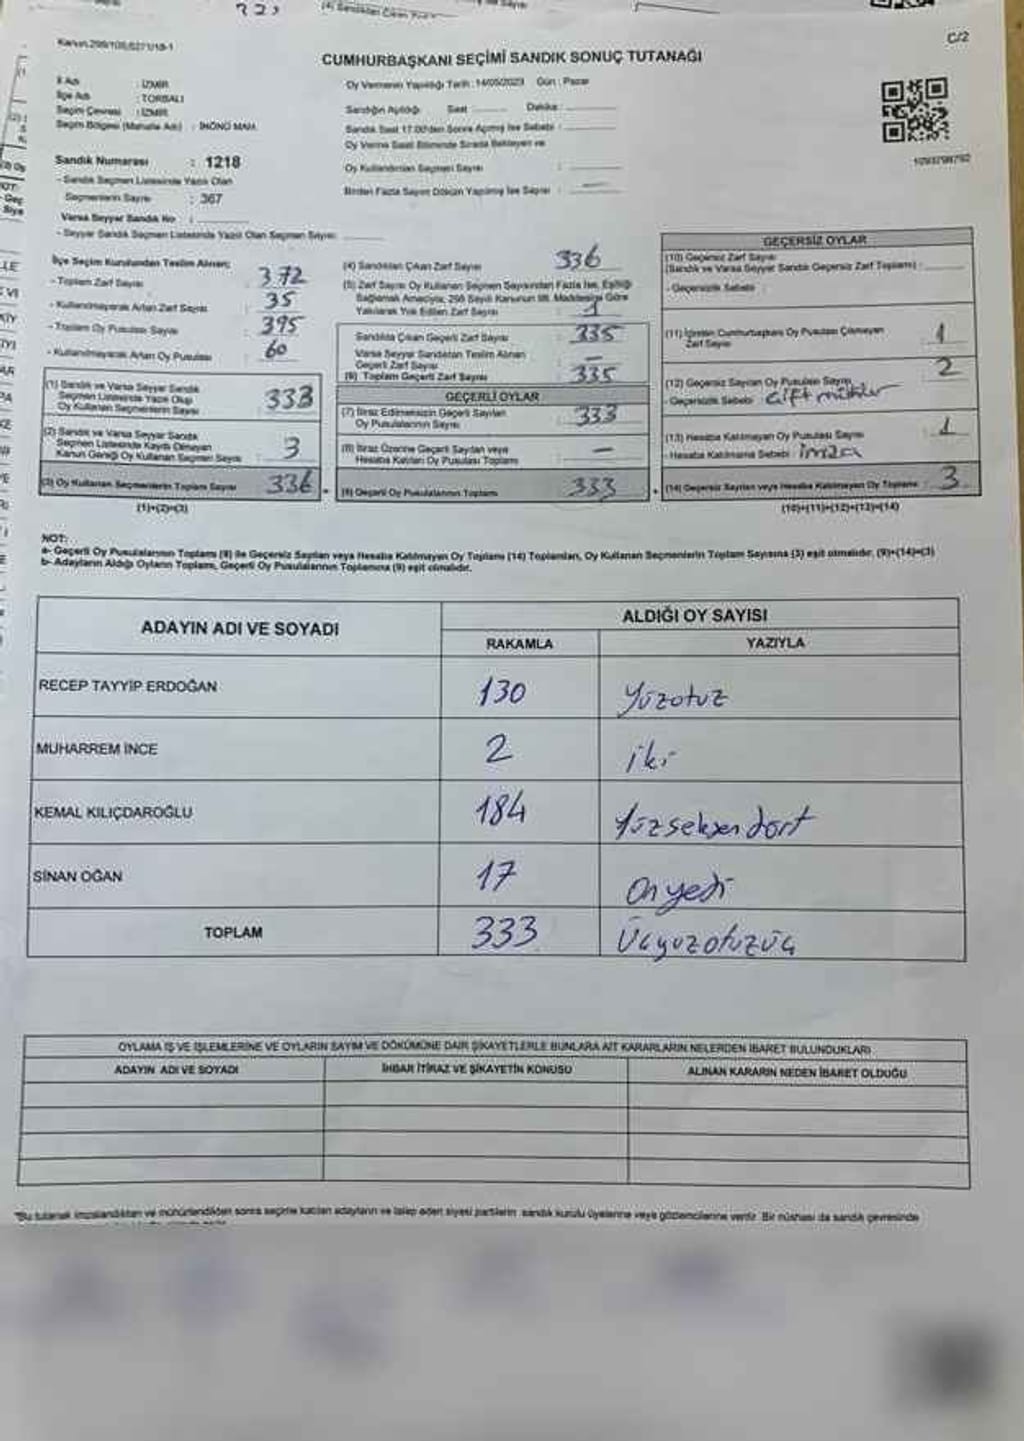 C/2
Kanun:298/105,6271/18-1
CUMHURBAŞKANI SEÇİMİ SANDIK SONUÇ TUTANAĞI
İl Adı : İZMİR
İlçe Adı : TORBALI
Seçim Çevresi : İZMİR
Seçim Bölgesi (Mahalle Adı) : İNÖNÜ MAH.
Oy Vermenin Yapıldığı Tarih : 14/05/2023 Gün : Pazar
Sandığın Açıldığı Saat Dakika :
Sandık Saat 17.00'den Sonra Açılmış İse Sebebi :
Oy Verme Saati Bitiminde Sırada Bekleyen ve
Oy Kullandırılan Seçmen Sayısı :
Birden Fazla Sayım Döküm Yapılmış İse Sayısı : —
1093798792
Sandık Numarası : 1218
- Sandık Seçmen Listesinde Yazılı Olan
Seçmenlerin Sayısı : 367
Varsa Seyyar Sandık No :
- Seyyar Sandık Seçmen Listesinde Yazılı Olan Seçmen Sayısı:
İlçe Seçim Kurulundan Teslim Alınan;
- Toplam Zarf Sayısı : 372
- Kullanılmayarak Artan Zarf Sayısı : 35
- Toplam Oy Pusulası Sayısı : 395
- Kullanılmayarak Artan Oy Pusulası : 60
(1) Sandık ve Varsa Seyyar Sandık
Seçmen Listesinde Yazılı Olup
Oy Kullanan Seçmenlerin Sayısı : 333
(2) Sandık ve Varsa Seyyar Sandık
Seçmen Listesinde Kayıtlı Olmayan
Kanun Gereği Oy Kullanan Seçmen Sayısı : 3
(3) Oy Kullanan Seçmenlerin Toplam Sayısı 336
(1)+(2)=(3)
(4) Sandıktan Çıkan Zarf Sayısı : 336
(5) Zarf Sayısı Oy Kullanan Seçmen Sayısından Fazla İse, Eşitliği
Sağlamak Amacıyla; 298 Sayılı Kanunun 98. Maddesine Göre
Yakılarak Yok Edilen Zarf Sayısı : 1
Sandıkta Çıkan Geçerli Zarf Sayısı : 335
Varsa Seyyar Sandıktan Teslim Alınan
Geçerli Zarf Sayısı : —
(6) Toplam Geçerli Zarf Sayısı : 335
GEÇERLİ OYLAR
(7) İtiraz Edilmeksizin Geçerli Sayılan
Oy Pusulalarının Sayısı : 333
(8) İtiraz Üzerine Geçerli Sayılan veya
Hesaba Katılan Oy Pusulası Toplamı : —
(9) Geçerli Oy Pusulalarının Toplamı : 333
GEÇERSİZ OYLAR
(10) Geçersiz Zarf Sayısı
(Sandık ve Varsa Seyyar Sandık Geçersiz Zarf Toplamı) :
- Geçersizlik Sebebi :
(11) İçinden Cumhurbaşkanı Oy Pusulası Çıkmayan
Zarf Sayısı : 1
(12) Geçersiz Sayılan Oy Pusulası Sayısı : 2
- Geçersizlik Sebebi : Çift mühür
(13) Hesaba Katılmayan Oy Pusulası Sayısı : 1
- Hesaba Katılmama Sebebi : imza
(14) Geçersiz Sayılan veya Hesaba Katılmayan Oy Toplamı : 3
(10)+(11)+(12)+(13)=(14)
NOT:
a- Geçerli Oy Pusulalarının Toplamı (9) ile Geçersiz Sayılan veya Hesaba Katılmayan Oy Toplamı (14) Toplamları, Oy Kullanan Seçmenlerin Toplam Sayısına (3) eşit olmalıdır. (9)+(14)=(3)
b- Adayların Aldığı Oyların Toplamı, Geçerli Oy Pusulalarının Toplamına (9) eşit olmalıdır.
ADAYIN ADI VE SOYADI
ALDIĞI OY SAYISI
RAKAMLA YAZIYLA
RECEP TAYYİP ERDOĞAN 130 Yüzotuz
MUHARREM İNCE 2 iki
KEMAL KILIÇDAROĞLU 184 Yüzseksendört
SİNAN OĞAN 17 Onyedi
TOPLAM 333 Üçyüzotuzüç
OYLAMA İŞ VE İŞLEMLERİNE VE OYLARIN SAYIM VE DÖKÜMÜNE DAİR ŞİKAYETLERLE BUNLARA AİT KARARLARIN NELERDEN İBARET BULUNDUKLARI
ADAYIN ADI VE SOYADI İHBAR İTİRAZ VE ŞİKAYETİN KONUSU ALINAN KARARIN NEDEN İBARET OLDUĞU
*Bu tutanak imzalandıktan ve mühürlendikten sonra seçime katılan adayların ve talep eden siyasi partilerin sandık kurulu üyelerine veya gözlemcilerine verilir. Bir nüshası da sandık çevresinde